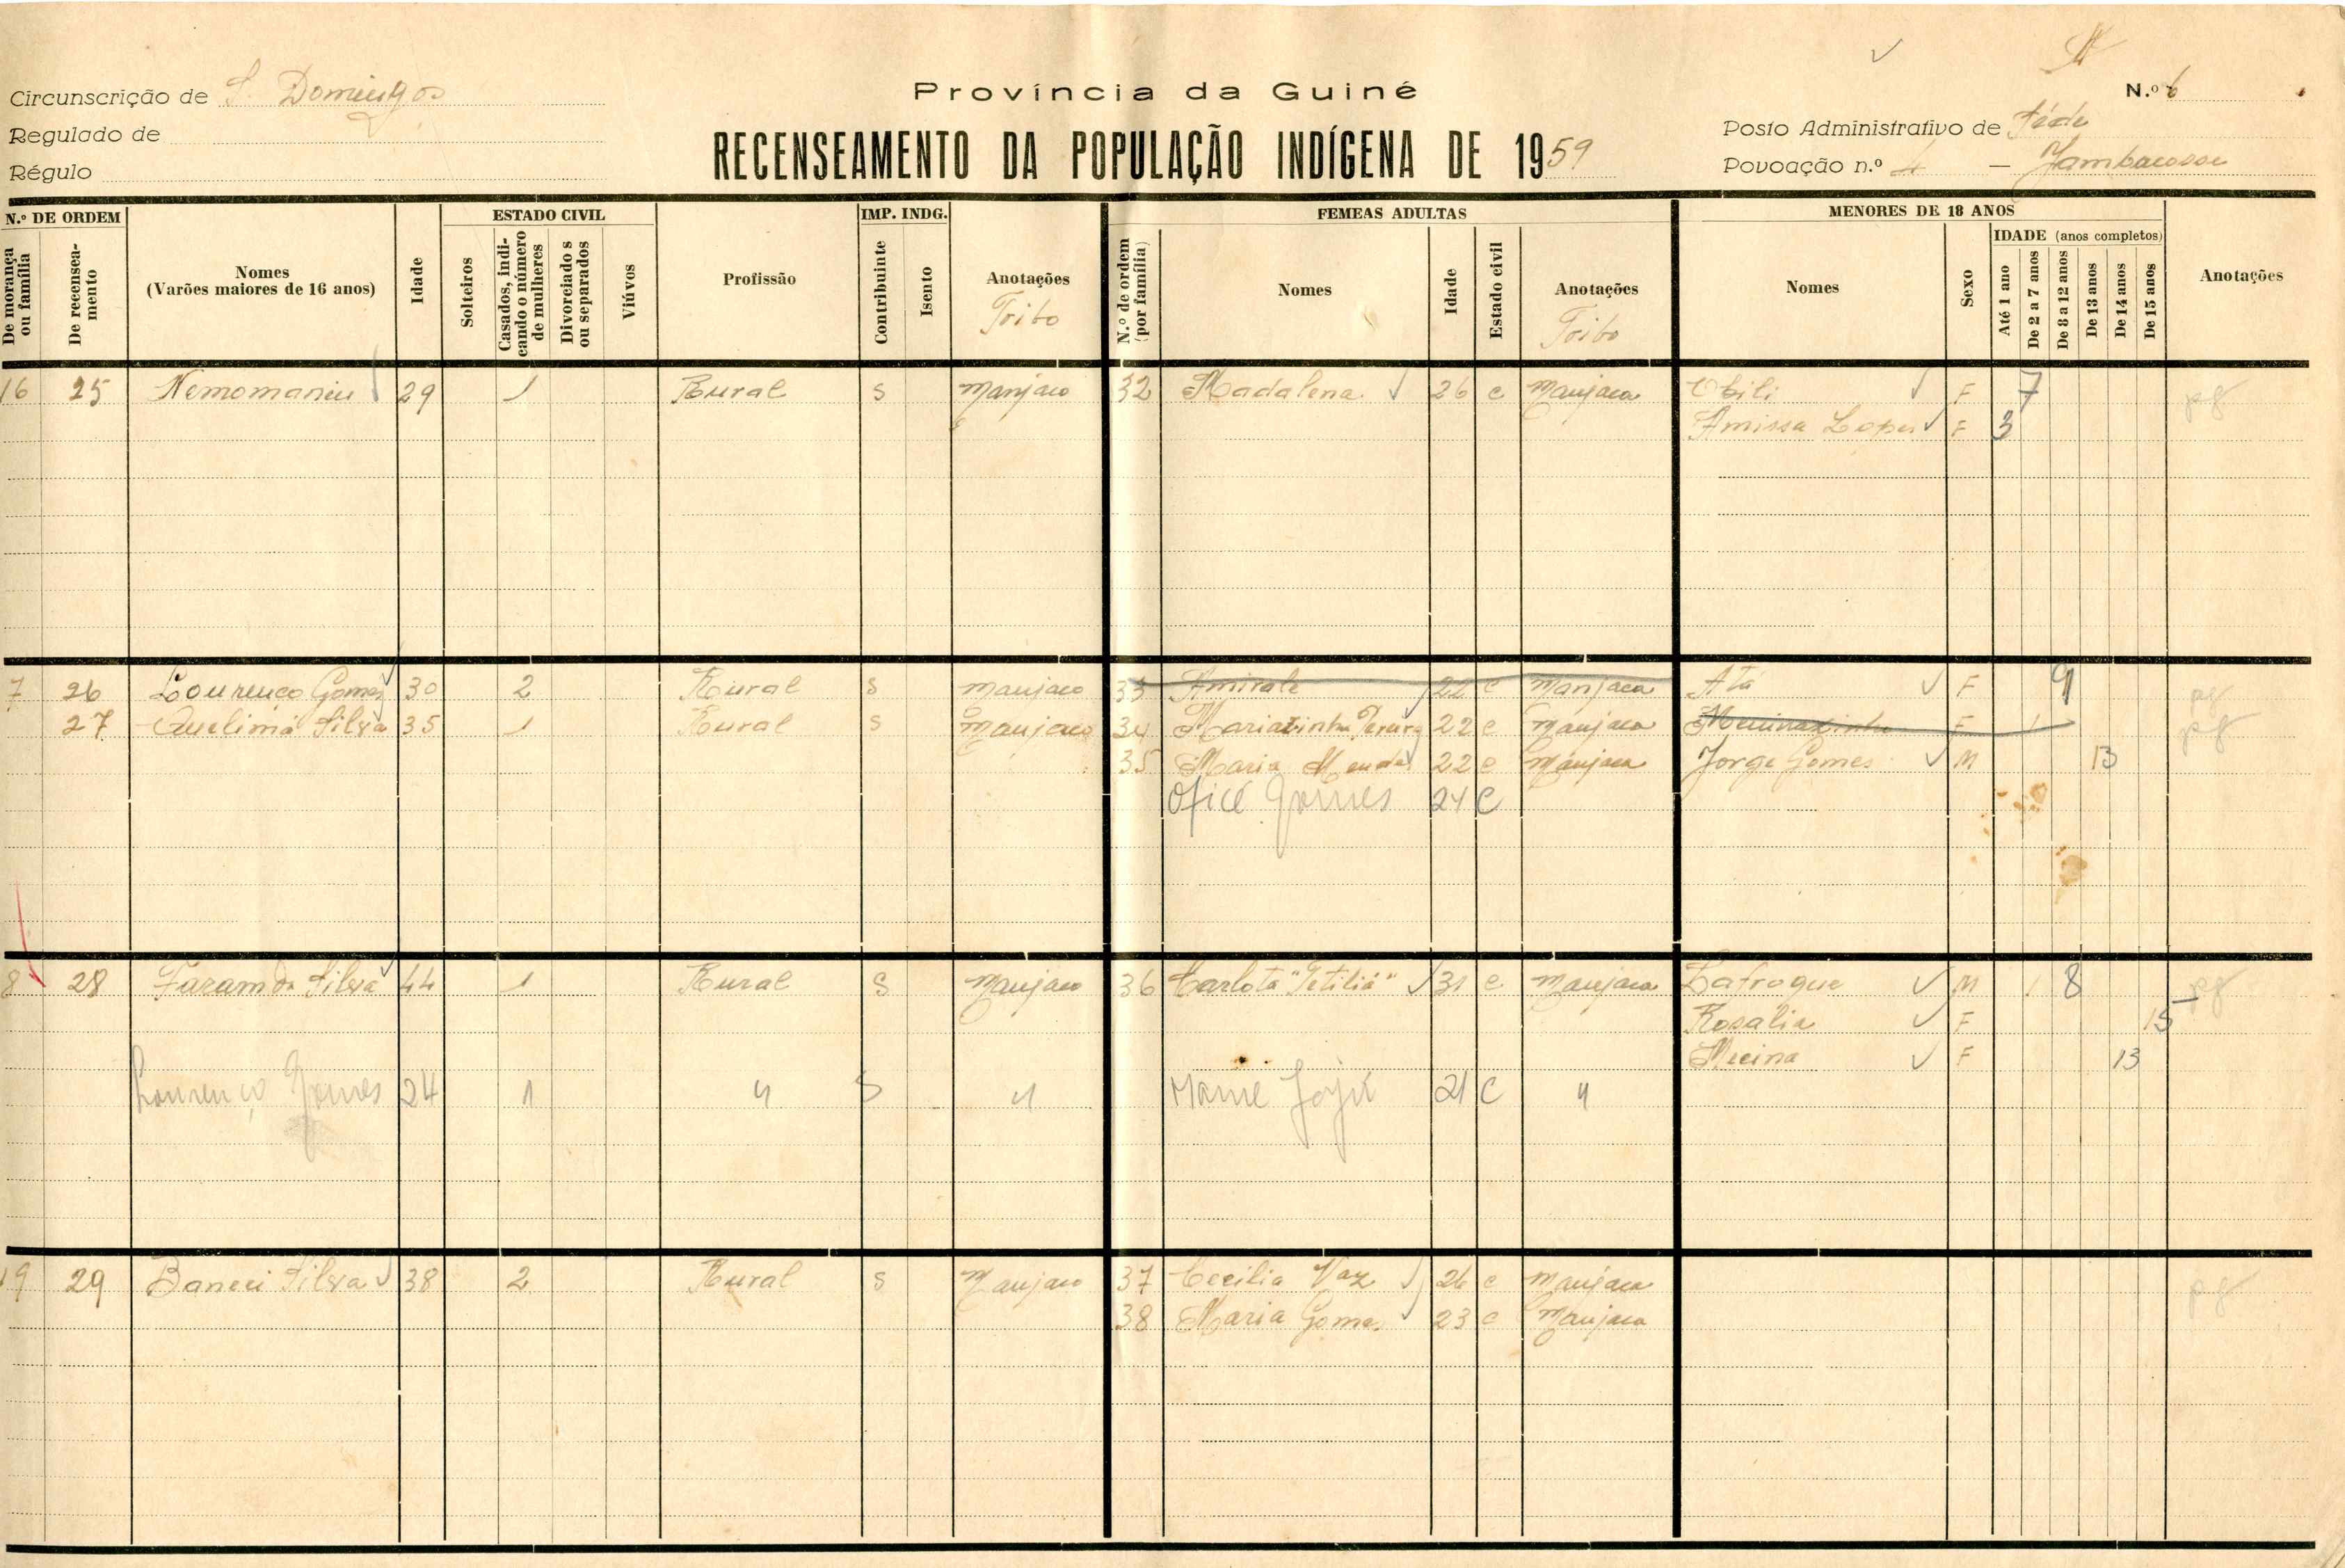 Província da Guiné
N.º 6
Circunscrição de S. Domingos
Regulado de
Régulo
RECENSEAMENTO DA POPULAÇÃO INDÍGENA DE 1959
Posto Administrativo de Séde
Povoação n.º 4 — Jambacosse
N.º DE ORDEM
De morança ou família
De recenseamento
Nomes
(Varões maiores de 16 anos)
Idade
ESTADO CIVIL
Solteiros
Casados, indicando o número de mulheres
Divorciados ou separados
Viúvos
Profissão
IMP. INDG.
Contribuinte
Isento
Anotações
Tribo
FEMEAS ADULTAS
N.º de ordem (por família)
Nomes
Idade
Estado civil
Anotações
Tribo
MENORES DE 18 ANOS
Nomes
Sexo
IDADE (anos completos)
Até 1 ano
De 2 a 7 anos
De 8 a 12 anos
De 13 anos
De 14 anos
De 15 anos
Anotações
16 25 29 1 Rural S Manjaco 32 Madalena 26 c Manjaca Obili F 7 pg
Amissa Lopes F 3
7 26 Lourenço Gomes 30 2 Rural S Manjaco 33 Amirale 22 c Manjaca Atá F 9 pg
27 Quelima Silva 35 1 Rural S Manjaco 34 Pereira 22 c Manjaca F 1 pg
35 Maria Mendes 22 c Manjaca Jorge Gomes M 13
Ofice Gomes 24 C
8 28 Faram da Silva 44 1 Rural S Manjaco 36 Carlota "Tetiliá" 31 c Manjaca Lafroque M 1 8 pg
Rosalia F 15
Mecina F 13
Lourenço Gomes 24 1 " S " Mame 21 C "
19 29 Baneci Silva 38 2 Rural S Manjaco 37 Cecilia Vaz 26 c Manjaca pg
38 Maria Gomes 23 c Manjaca